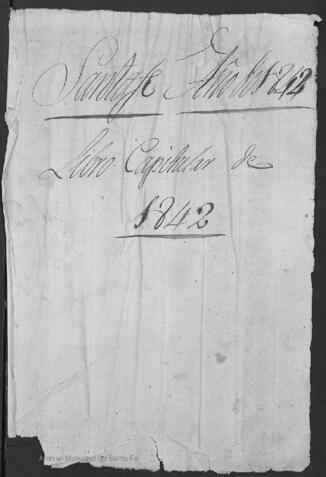 Santafe Año de 1842
Libro Capitular de
1842
Archivo Municipal de Santa Fe